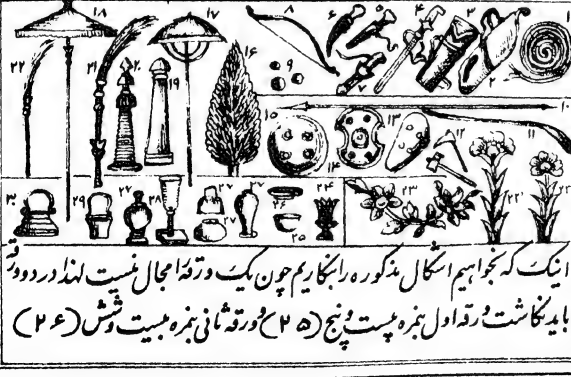 ۱۸ ۱۷ ۸ ۶ ۵ ۴ ۳ ۱
۲۲ ۲۱ ۲۰ ۱۹ ۱۶ ۹ ۷ ۲
۱۵ ۱۴ ۱۳ ۱۲ ۱۱ ۱۰
۳۰ ۲۹ ۲۷ ۲۸ ۲۷ ۲۷ ۲۷ ۲۶ ۲۵ ۲۴ ۲۳ ۲۲
اینک که بخواهیم اشکال مذکوره را بنگاریم چون یک ورقه را مجال نیست لهذا در دو ورقه
باید نگاشت ورقه اول بنمره بیست و پنج (۲۵) و ورقه ثانی بنمره بیست و شش (۲۶)